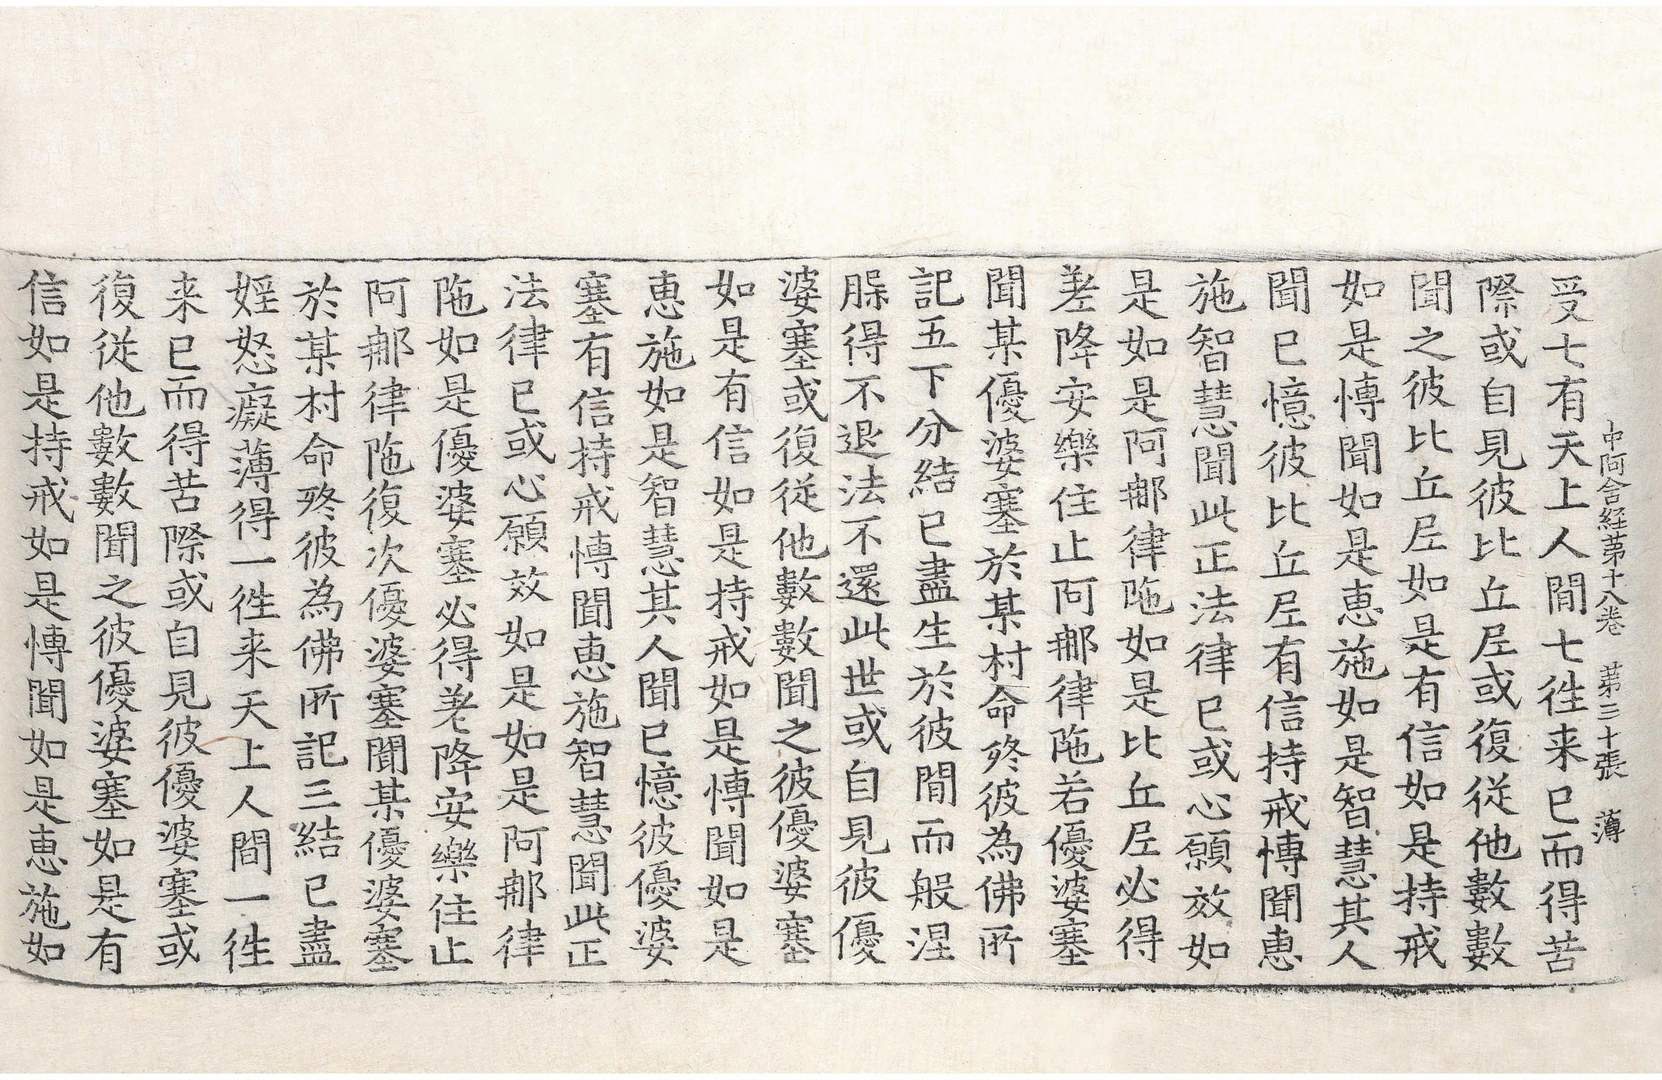 中阿含経苐十八卷　苐三十張　薄
受七有天上人間七徃来已而得苦
際或自見彼比丘𡰱或復從他數數
聞之彼比丘𡰱如是有信如是持戒
如是愽聞如是恵施如是智慧其人
聞已憶彼比丘𡰱有信持戒愽聞恵
施智慧聞此正法律已或心願效如
是如是阿𨚗律陁如是比丘𡰱必得
差降安樂住止阿𨚗律陁若優婆塞
聞某優婆塞於某村命終彼為佛所
記五下分結已盡生於彼間而般涅
𦙃得不退法不還此世或自見彼優
婆塞或復從他數數聞之彼優婆塞
如是有信如是持戒如是愽聞如是
恵施如是智慧其人聞已憶彼優婆
塞有信持戒愽聞恵施智慧聞此正
法律已或心願效如是如是阿𨚗律
陁如是優婆塞必得差降安樂住止
阿𨚗律陁復次優婆塞聞某優婆塞
於某村命終彼為佛所記三結已盡
婬怒癡薄得一徃来天上人間一徃
来已而得苦際或自見彼優婆塞或
復從他數數聞之彼優婆塞如是有
信如是持戒如是愽聞如是恵施如